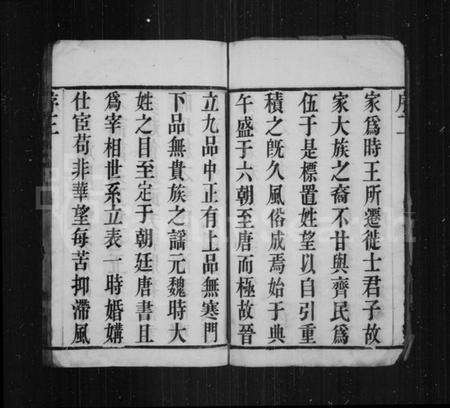 家爲時王所遷徙士君子故
家大族之裔不甘與齊民爲
伍于是標置姓望以自引重
積之旣久風俗成焉始于典
午盛于六朝至唐而極故晉
立九品中正有上品無寒門
下品無貴族之謡元魏時大
姓之目至定于朝廷唐書且
爲宰相世系立表一時婚媾
仕宦苟非華望每苦抑滯風